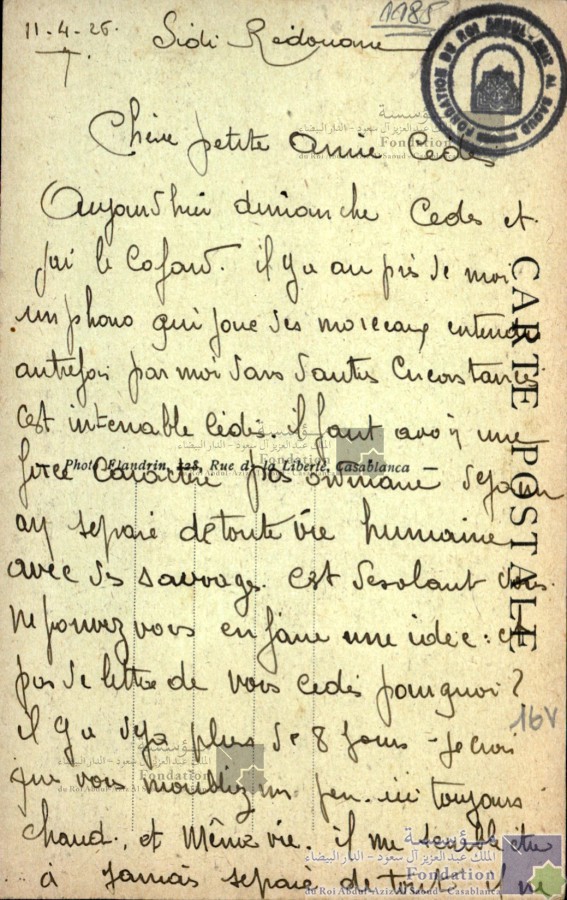 1185
11-4-26.
Sidi Redouane
FONDATION DU ROI ABDUL-AZIZ AL SAOUD
Chère petite Amie Cedes
Aujourd'hui dimanche Cedes et
j'ai le Cafard. il y a au près de moi
un phono qui joue des morceaux entendus
autrefois par moi dans d'autres Circonstances
c'est intenable Cédes. il faut avoir une
force Caractère pas ordinaire
Photo Flandrin, 128, Rue de la Liberté, Casablanca
separé de toute vie humaine
avec des sauvages. c'est desolant vous
ne pouvez vous en faire une idée : et
pas de lettre de vous cedes pourquoi ?
il y a deja plus de 8 jours - je crois
que vous m'oubliez un peu. ici toujours
chaud, et même vie. il me semble être
à jamais separé de tout. il me
CARTE POSTALE
16V
مؤسسة
الملك عبد العزيز آل سعود - الدار البيضاء
Fondation
du Roi Abdul-Aziz Al Saoud - Casablanca